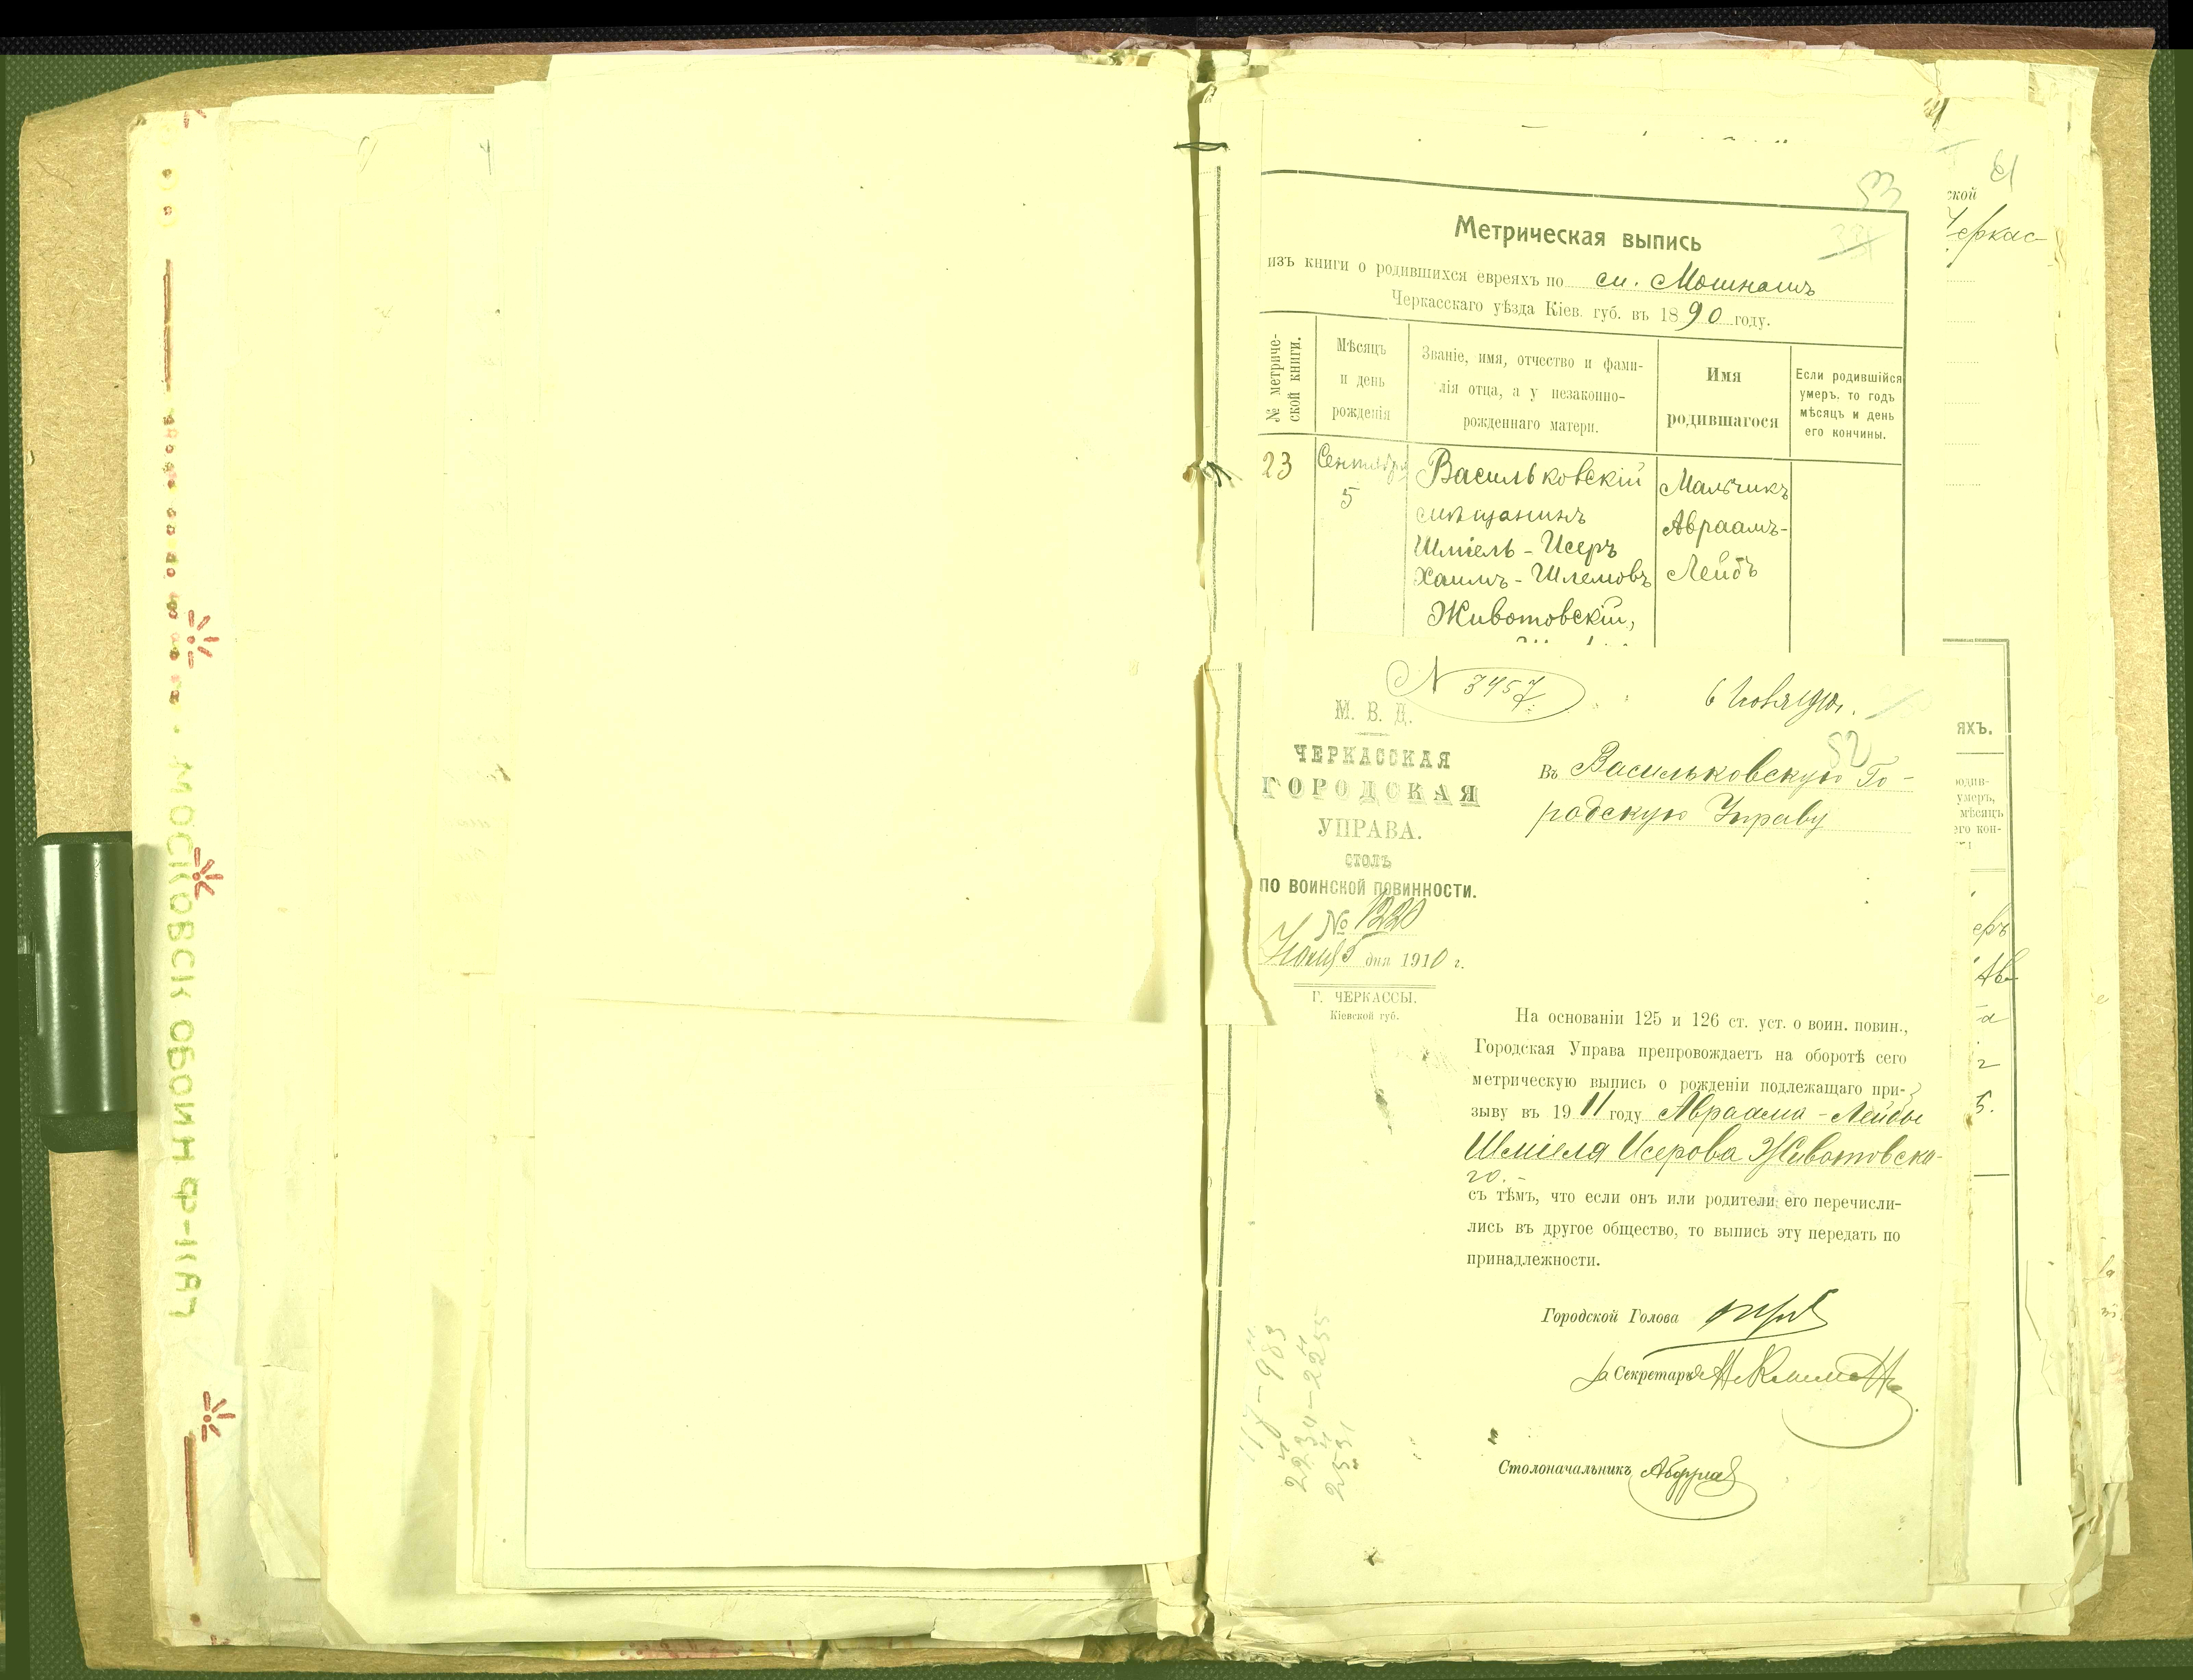 53
Метрическая выпись
изъ книги о родившихся евреяхъ по м. Мошнамъ
Черкасскаго уѣзда Кіев. губ. въ 1890 году.
№ метриче-
ской книги.
Мѣсяцъ
и день
рожденія
Званіе, имя, отчество и фами-
лія отца, а у незаконно-
рожденнаго матери.
Имя
родившагося
Если родившійся
умеръ, то годъ
мѣсяцъ и день
его кончины.
23
Сентября
5
Васильковскій
мѣщанинъ
Шміель-Исеръ
Хаимъ-Шлемовъ
Животовскій,
Мальчикъ
Авраамъ-
Лейбъ
N 3957
6 Ноября 1910 г.
52
М. В. Д.
ЧЕРКАССКАЯ
ГОРОДСКАЯ
УПРАВА.
СТОЛЪ
ПО ВОИНСКОЙ ПОВИННОСТИ.
№ 1220
Нояб 5 дня 1910 г.
Г. ЧЕРКАССЫ.
Кіевской губ.
Въ Васильковскую Го-
родскую Управу
На основаніи 125 и 126 ст. уст. о воин. повин.,
Городская Управа препровождаетъ на оборотѣ сего
метрическую выпись о рожденіи подлежащаго при-
зыву въ 1911 году Авраама-Лейбы
Шміеля Исерова Животовска-
го.-
съ тѣмъ, что если онъ или родители его перечисли-
лись въ другое общество, то выпись эту передать по
принадлежности.
Городской Голова
За Секретаря
Столоначальникъ
61
ской
Черкас-
яхъ.
родив-
умеръ,
мѣсяцъ
его кон-
еръ
Ав-
5.